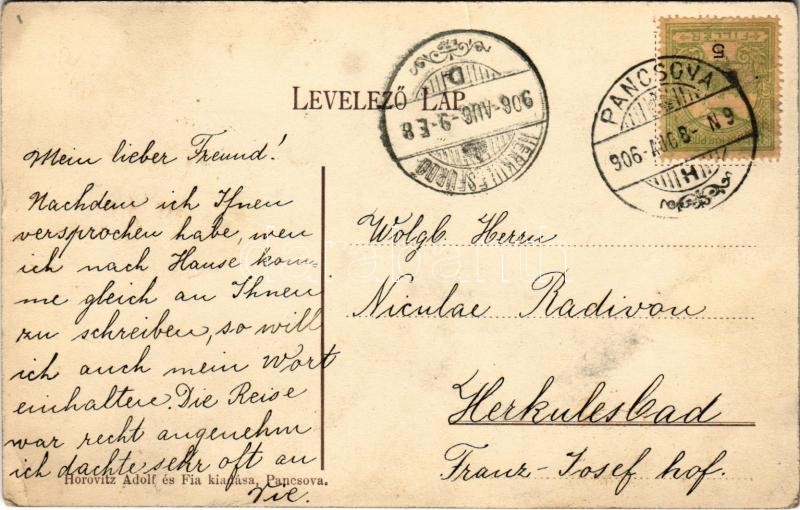 LEVELEZŐ LAP
FILLÉR
5
PANCSOVA
906-AUG 8- N 9
H
D
906-AUG-9-E 8
HERKULESFÜRDŐ
Mein lieber Freund!
Nachdem ich Ihnen
versprochen habe, wen
ich nach Hause kom-
me gleich an Ihnen
zu schreiben, so will
ich auch mein Wort
einhalten. Die Reise
war recht angenehm
ich dachte sehr oft an
Sie.
Wolgb. Herrn
Niculae Radivon
Herkulesbad
Franz-Josef hof.
Horovitz Adolf és Fia kiadása, Pancsova.
darabanth